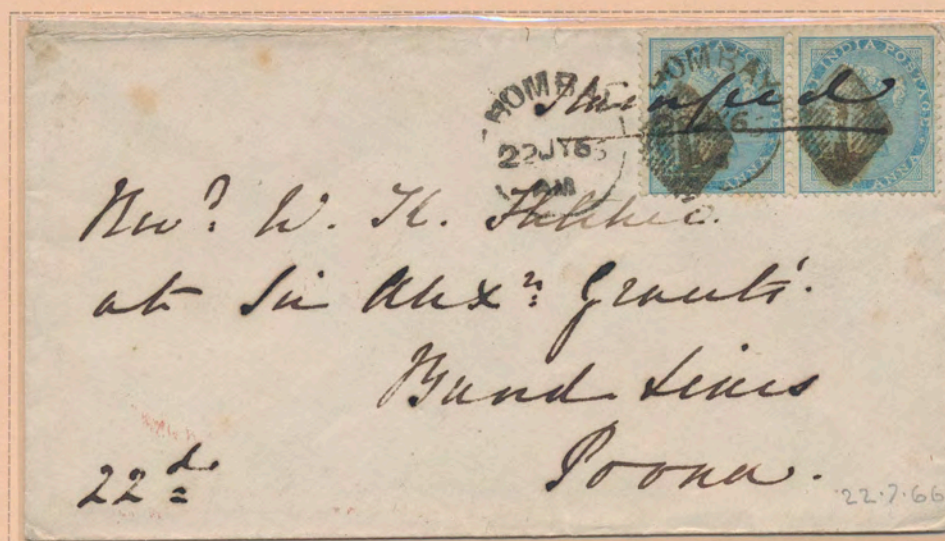 Stamped
BOMBAY
22 JY 6
BOMBAY
INDIA POSTAGE
ANNA
ANNA
Revd. W. K. Fletcher.
at Sir Alexr. Grant's.
Bund Lines
Poona.
22d
22.7.66